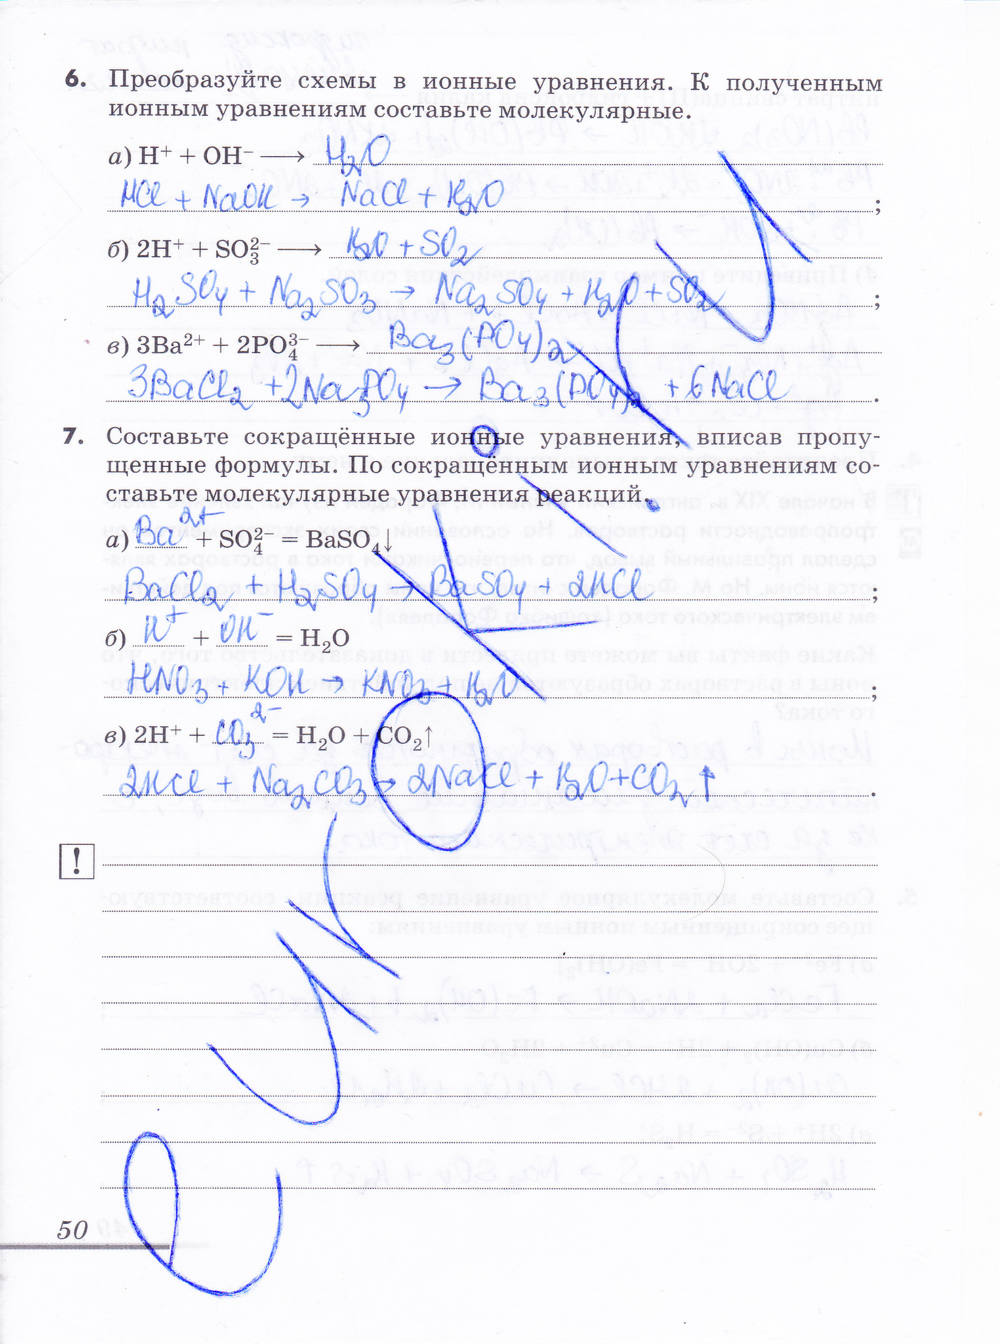 6. Преобразуйте схемы в ионные уравнения. К полученным
ионным уравнениям составьте молекулярные.
а) H⁺ + OH⁻ ⟶ H₂O
HCl + NaOH → NaCl + H₂O ;
б) 2H⁺ + SO₃²⁻ ⟶ H₂O + SO₂
H₂SO₄ + Na₂SO₃ → Na₂SO₄ + H₂O + SO₂ ;
в) 3Ba²⁺ + 2PO₄³⁻ ⟶ Ba₃(PO₄)₂
3BaCl₂ + 2Na₃PO₄ → Ba₃(PO₄)₂ + 6NaCl .
7. Составьте сокращённые ионные уравнения, вписав пропу-
щенные формулы. По сокращённым ионным уравнениям со-
ставьте молекулярные уравнения реакций.
а) Ba²⁺ + SO₄²⁻ = BaSO₄↓
BaCl₂ + H₂SO₄ → BaSO₄ + 2HCl ;
б) H⁺ + OH⁻ = H₂O
HNO₃ + KOH → KNO₃ + H₂O ;
в) 2H⁺ + CO₃²⁻ = H₂O + CO₂↑
2HCl + Na₂CO₃ → 2NaCl + H₂O + CO₂ ↑ .
!
50